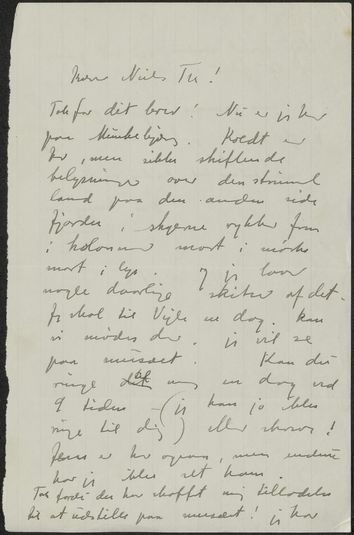 Kære Niels Th!
Tak for dit brev! Nu er jeg her
paa Munkebjerg. Koldt er
her, men sikke skiftende
belysninger over den strimmel
land paa den anden side
fjorden i skyerne rykker frem
i kolonner mørt i mørke
mørt i lys. Og jeg laver
nogle daarlige skitser af det.
Jeg skal til Vejle en dag. Kan
vi mødes der. jeg vil se
paa museet. Kan du
ringe til mig en dag ved
9 tiden (jeg kan jo ikke
ringe til dig) eller skrive!
Jens er her ogsaa, men endnu
har jeg ikke set ham.
Tak fordi du har skaffet mig tilladelse
til at udstille paa museet! jeg har